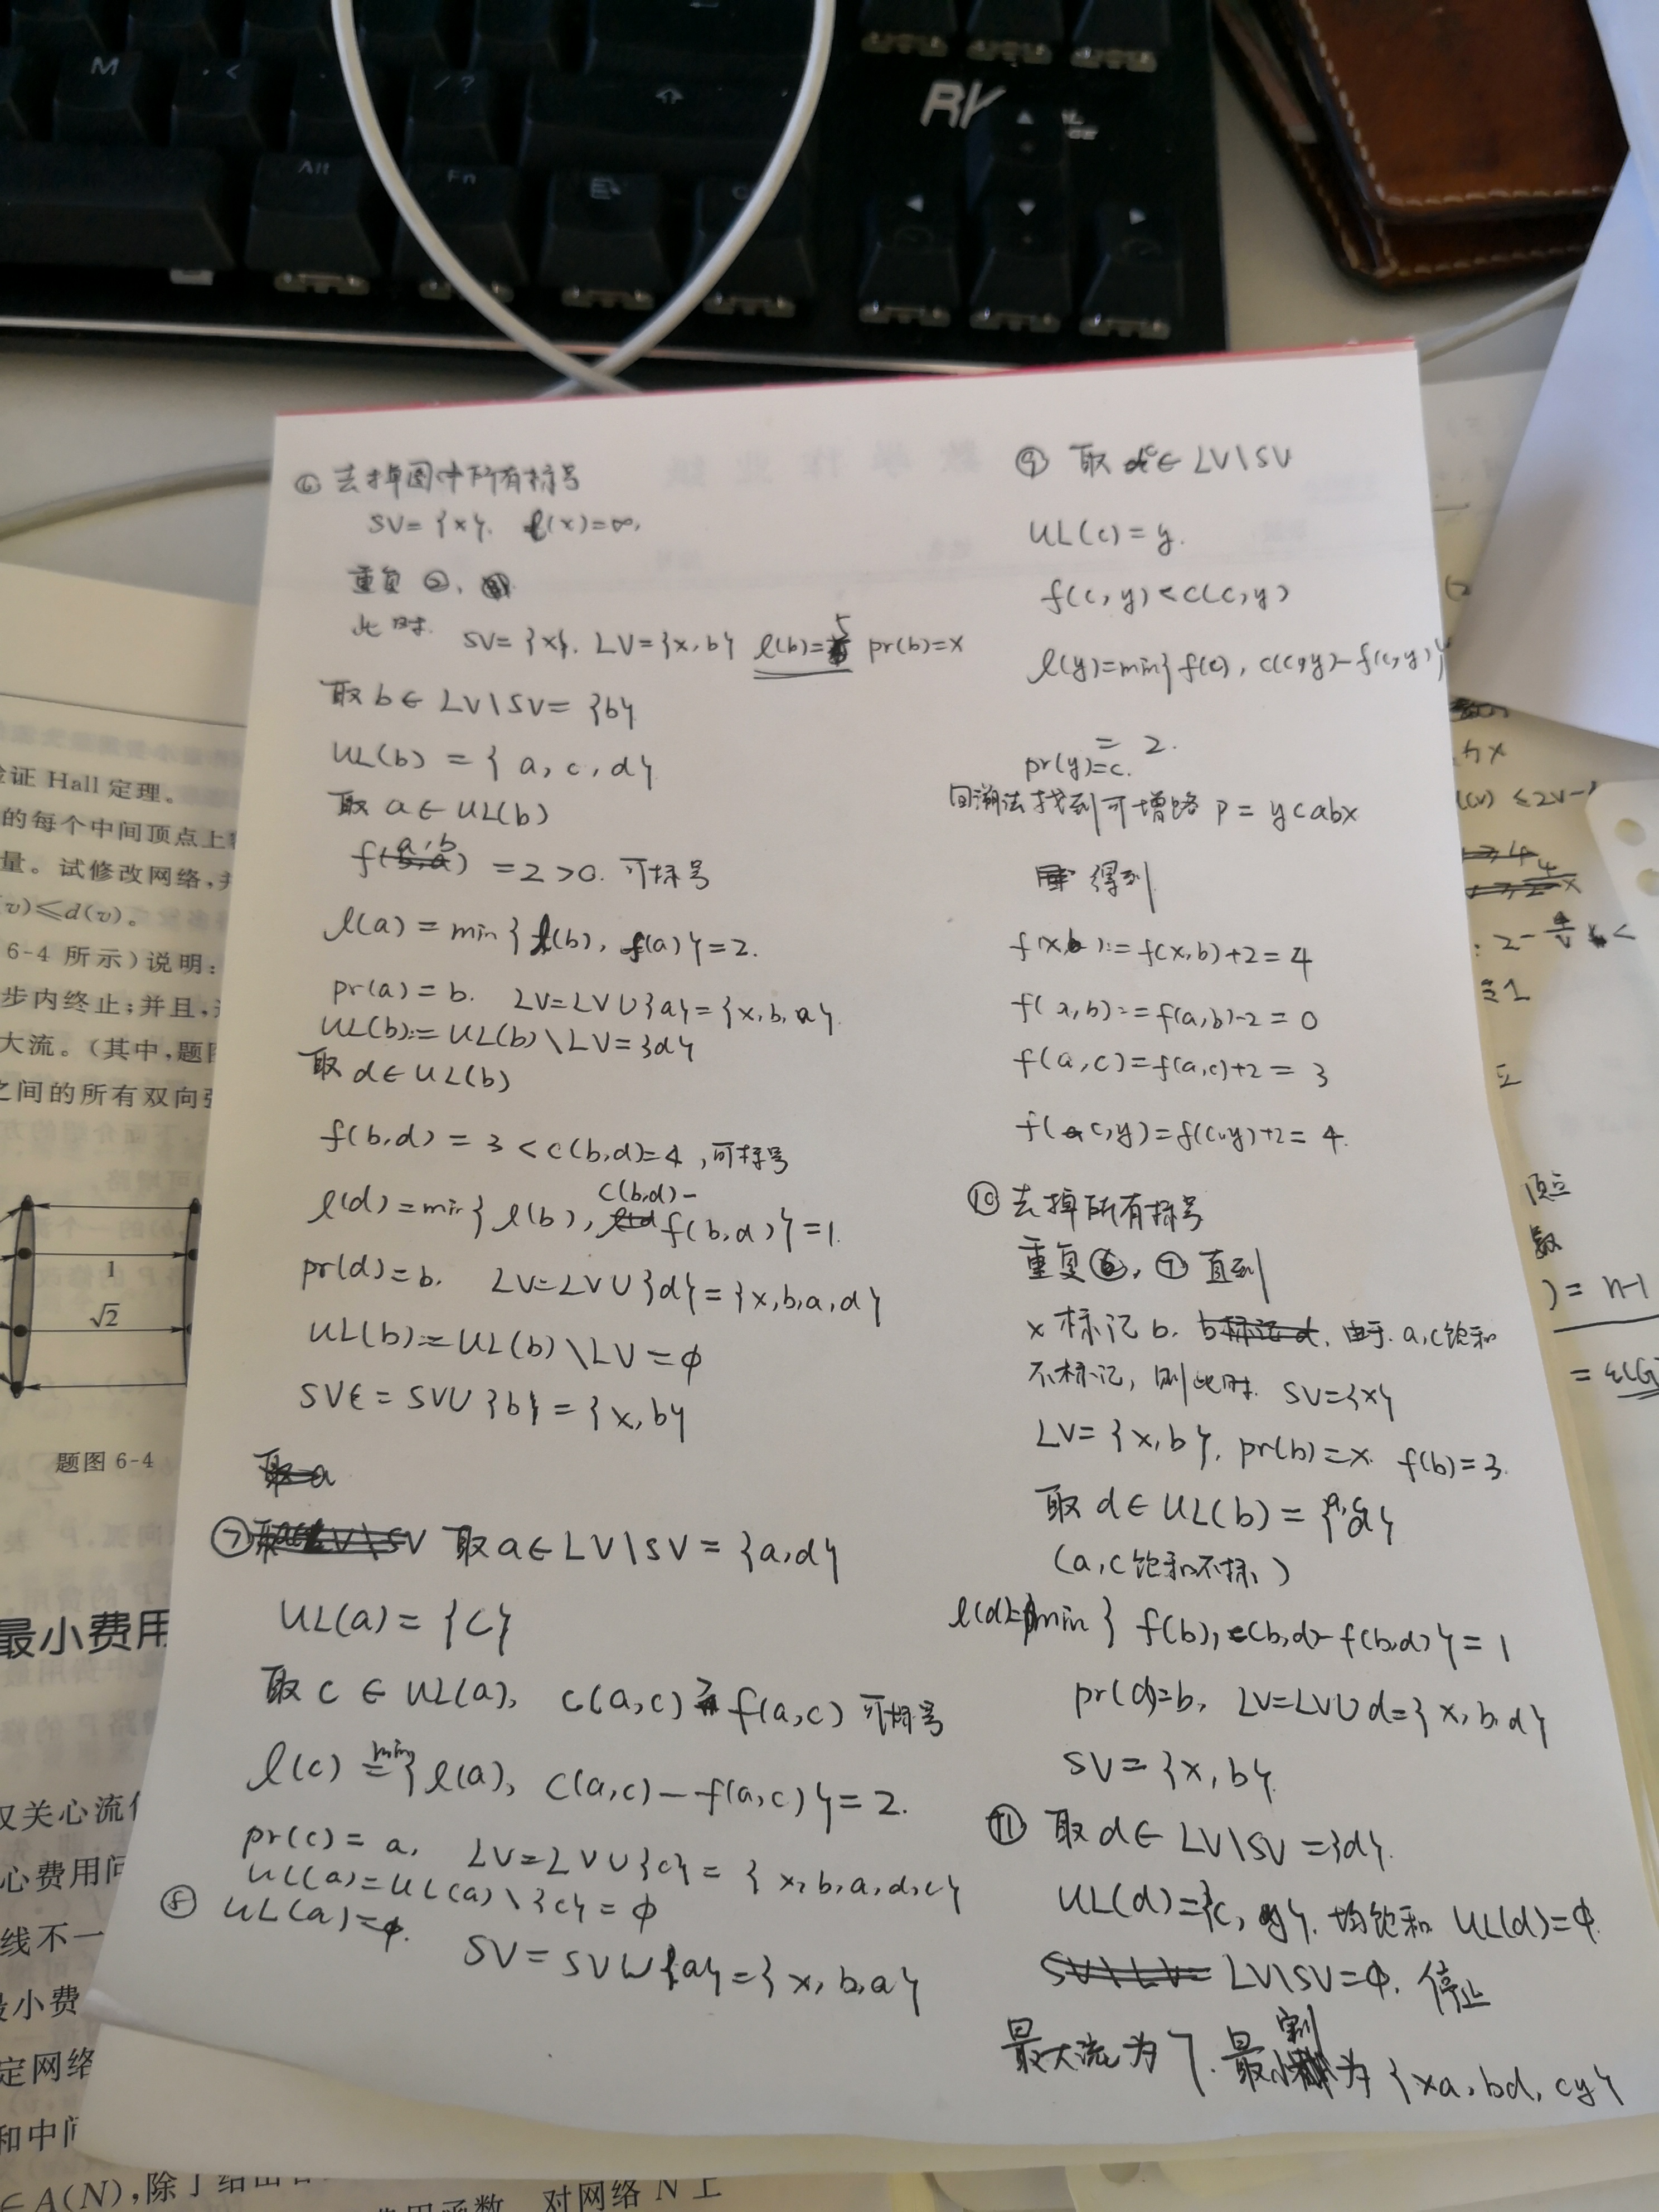 M
<
/ ?
Alt
Fn
RV
⑥ 去掉图中所有标号
SV={x}. l(x)=∞,
重复②,
此时. SV={x}. LV={x,b} l(b)=5 pr(b)=x
取 b∈ LV\SV= {b}
UL(b) = { a, c, d}
取 a∈UL(b)
f(a,b) =2>0. 可标号
l(a) = min{l(b), f(a)}=2.
pr(a)=b. LV=LV∪{a}={x,b,a}.
UL(b):= UL(b)\LV={d}
取 d∈UL(b)
f(b,d) = 3 < c(b,d)=4 ,可标号
l(d)=min{ l(b), c(b,d)- f(b,d)}=1.
pr(d)=b. LV=LV∪{d}={x,b,a,d}
UL(b):=UL(b)\LV=φ
SV= SV∪{b}={x,b}
取 a
⑦ 取a∈LV\SV={a,d}
UL(a)={c}
取 c ∈ UL(a), c(a,c) > f(a,c) 可标号
l(c) = min{l(a), c(a,c)-f(a,c)}=2.
pr(c)=a, LV=LV∪{c}={x,b,a,d,c}
UL(a)=UL(a)\{c}=φ
⑧ UL(a)=φ.
SV=SV∪{a}={x,b,a}
⑨ 取 c∈ LV\SV
UL(c)=y.
f(c,y)<c(c,y)
l(y)=min{f(c), c(c,y)-f(c,y)}
= 2.
pr(y)=c.
回溯法找到可增路 P= ycabx
得到
f(x,b):=f(x,b)+2=4
f(a,b):=f(a,b)-2=0
f(a,c)=f(a,c)+2=3
f(c,y)=f(c,y)+2=4.
⑩ 去掉所有标号
重复⑥,⑦直到
x 标记 b. b标记d. 由于. a,c饱和
不标记,则此时. SV={x}
LV={x,b}. pr(b)=x. f(b)=3.
取 d∈UL(b)={a,c,d}
(a,c饱和不标.)
l(d)=min{ f(b), c(b,d)-f(b,d)}=1
pr(d)=b, LV=LV∪d={x,b,d}
SV={x,b}.
⑪ 取 d∈ LV\SV={d}.
UL(d)={c, y}. 均饱和 UL(d)=φ.
SV\LV= LV\SV=φ. 停止
最大流为 7. 最小割为 {xa, bd, cy}
证 Hall 定理。
的每个中间顶点上
量。试修改网络,
(v)≤d(v)。
6-4 所示)说明:
步内终止;并且,
大流。(其中,题图
之间的所有双向弧
1
√2
题图 6-4
最小费用
仅关心流
心费用问
线不一
最小费
定网络
和中间
∈A(N),除了给出
费用函数 对网络 N 上
(v) ≤2v-
顶点
数
)= n-1